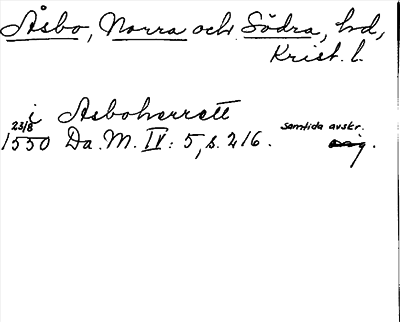 Åsbo, Norra och Södra, hd,
Krist. l.
i Asboherrett
23/8 samtida avskr.
1550 Da. M. IV: 5, s. 216. orig.